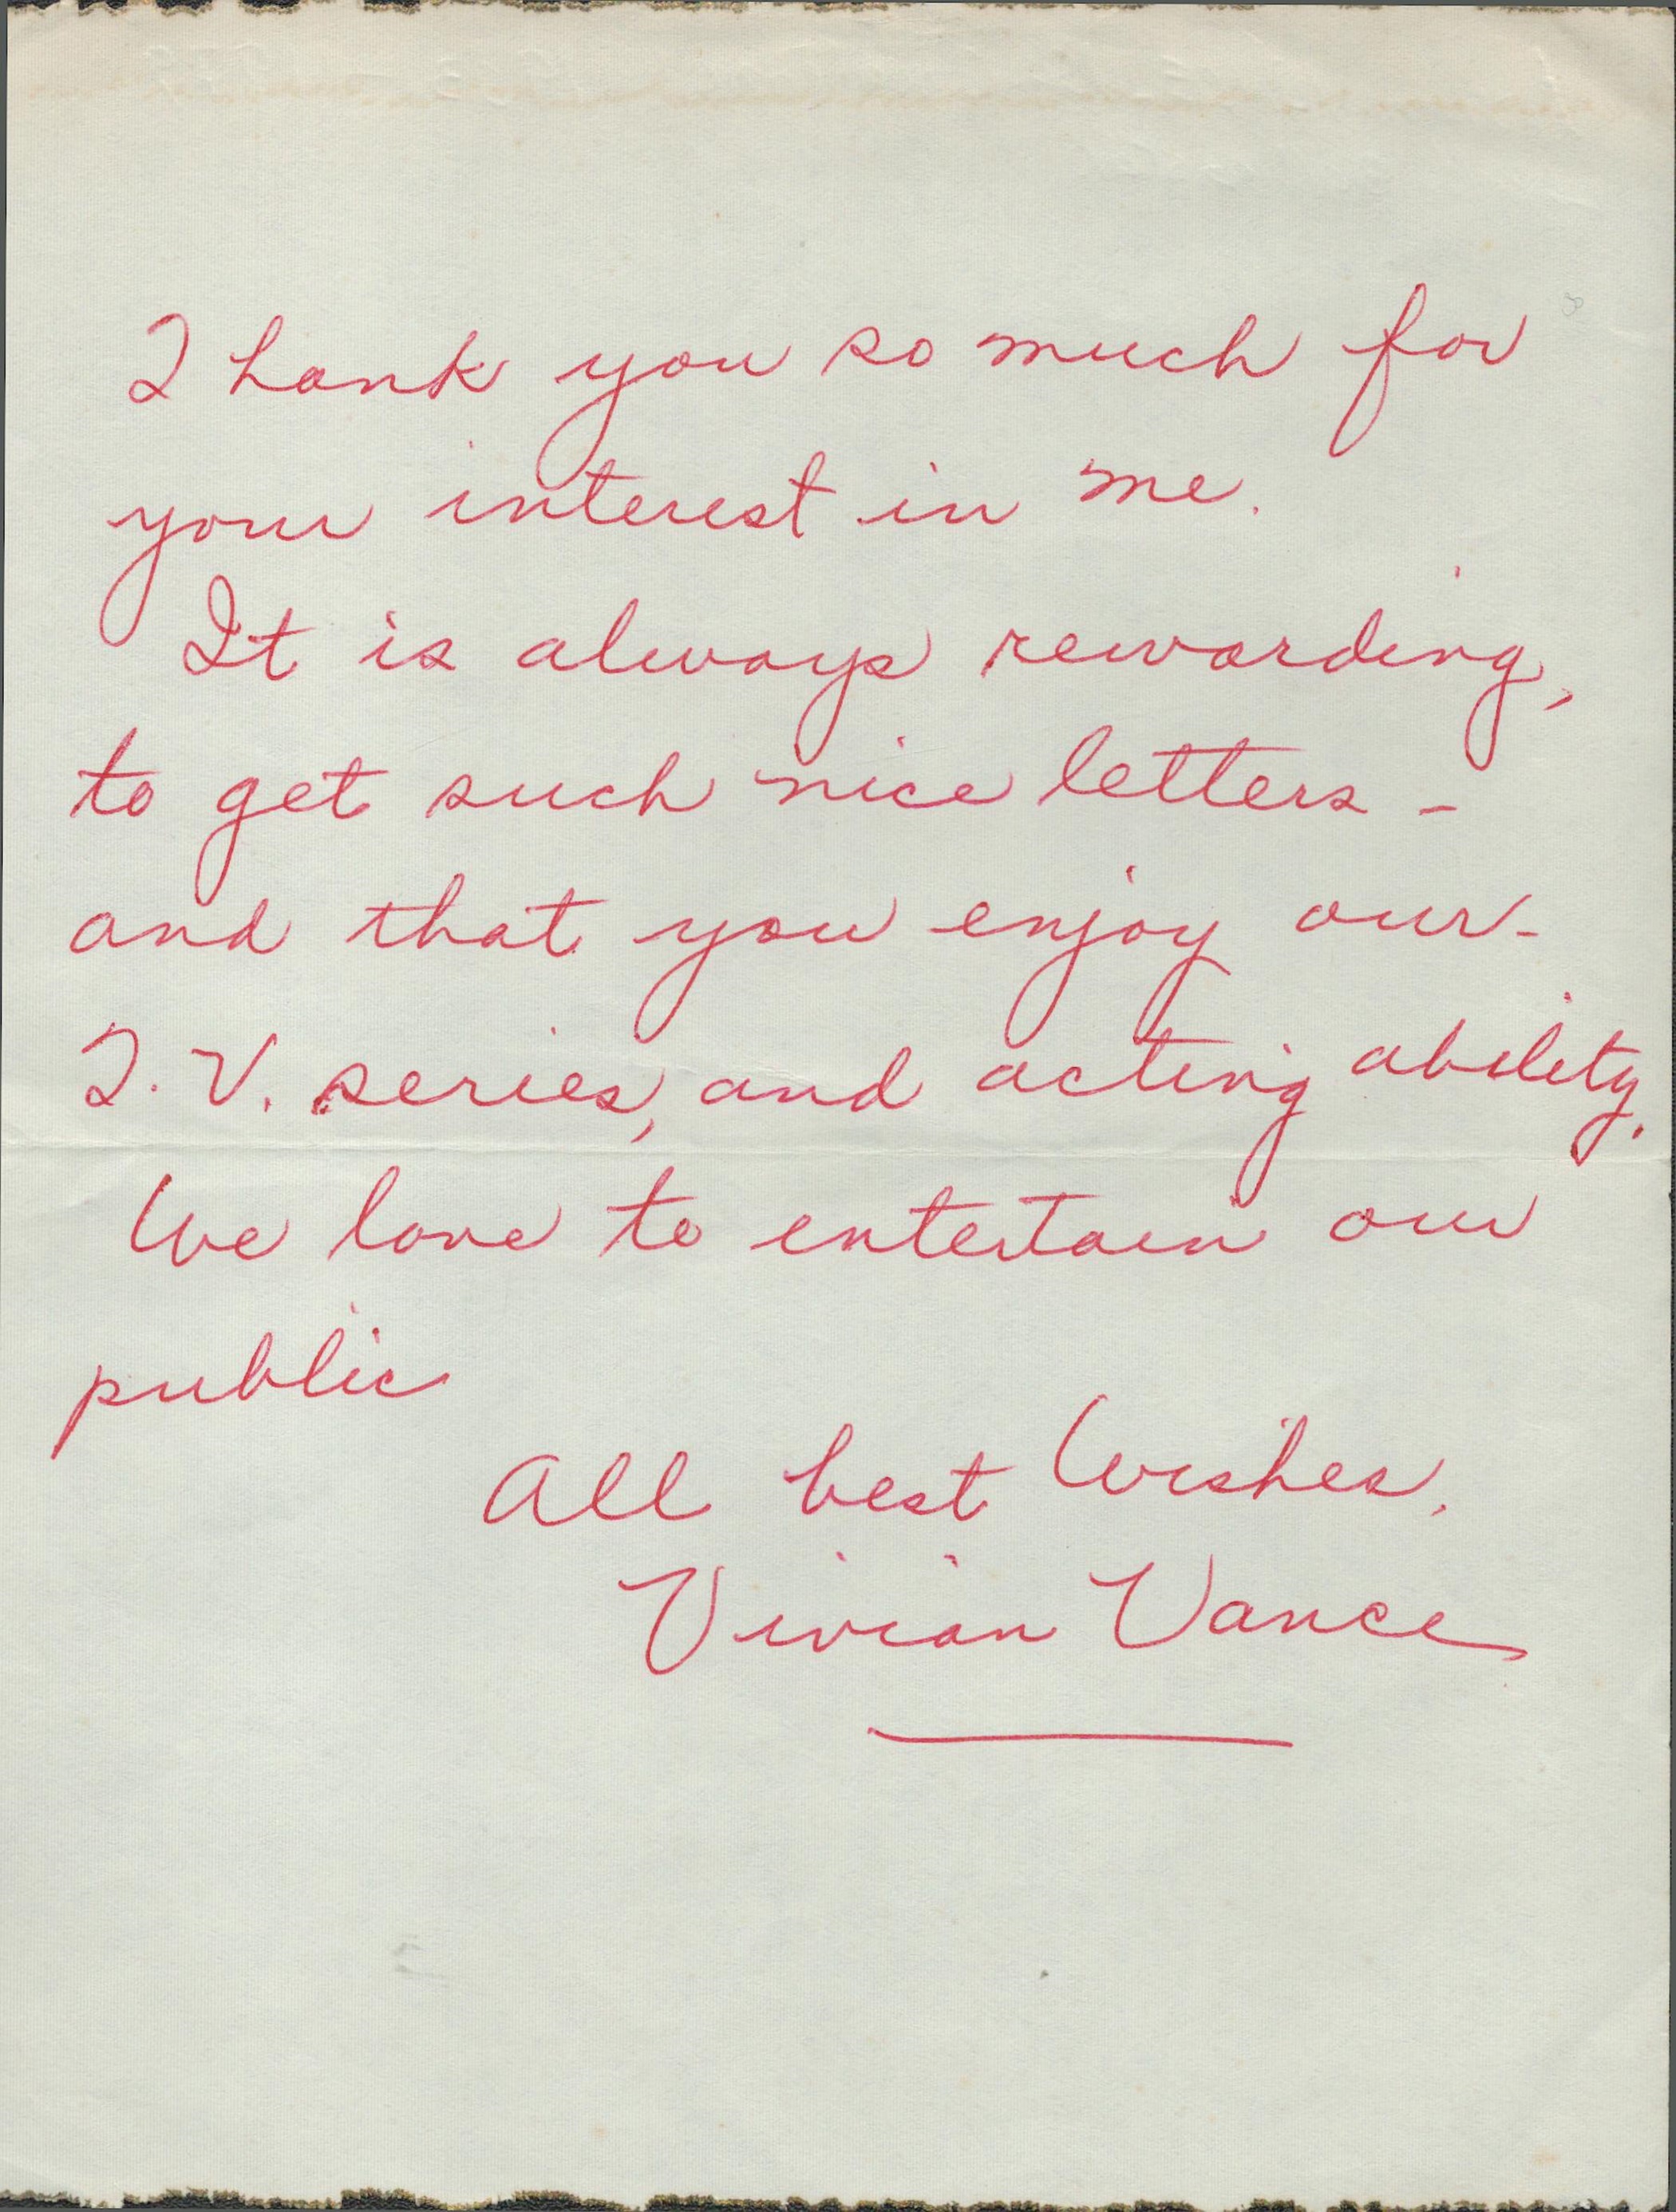 Thank you so much for
your interest in me.
It is always rewarding,
to get such nice letters -
and that you enjoy our -
T.V. series, and acting ability.
We love to entertain our
public
All best Wishes.
Vivian Vance